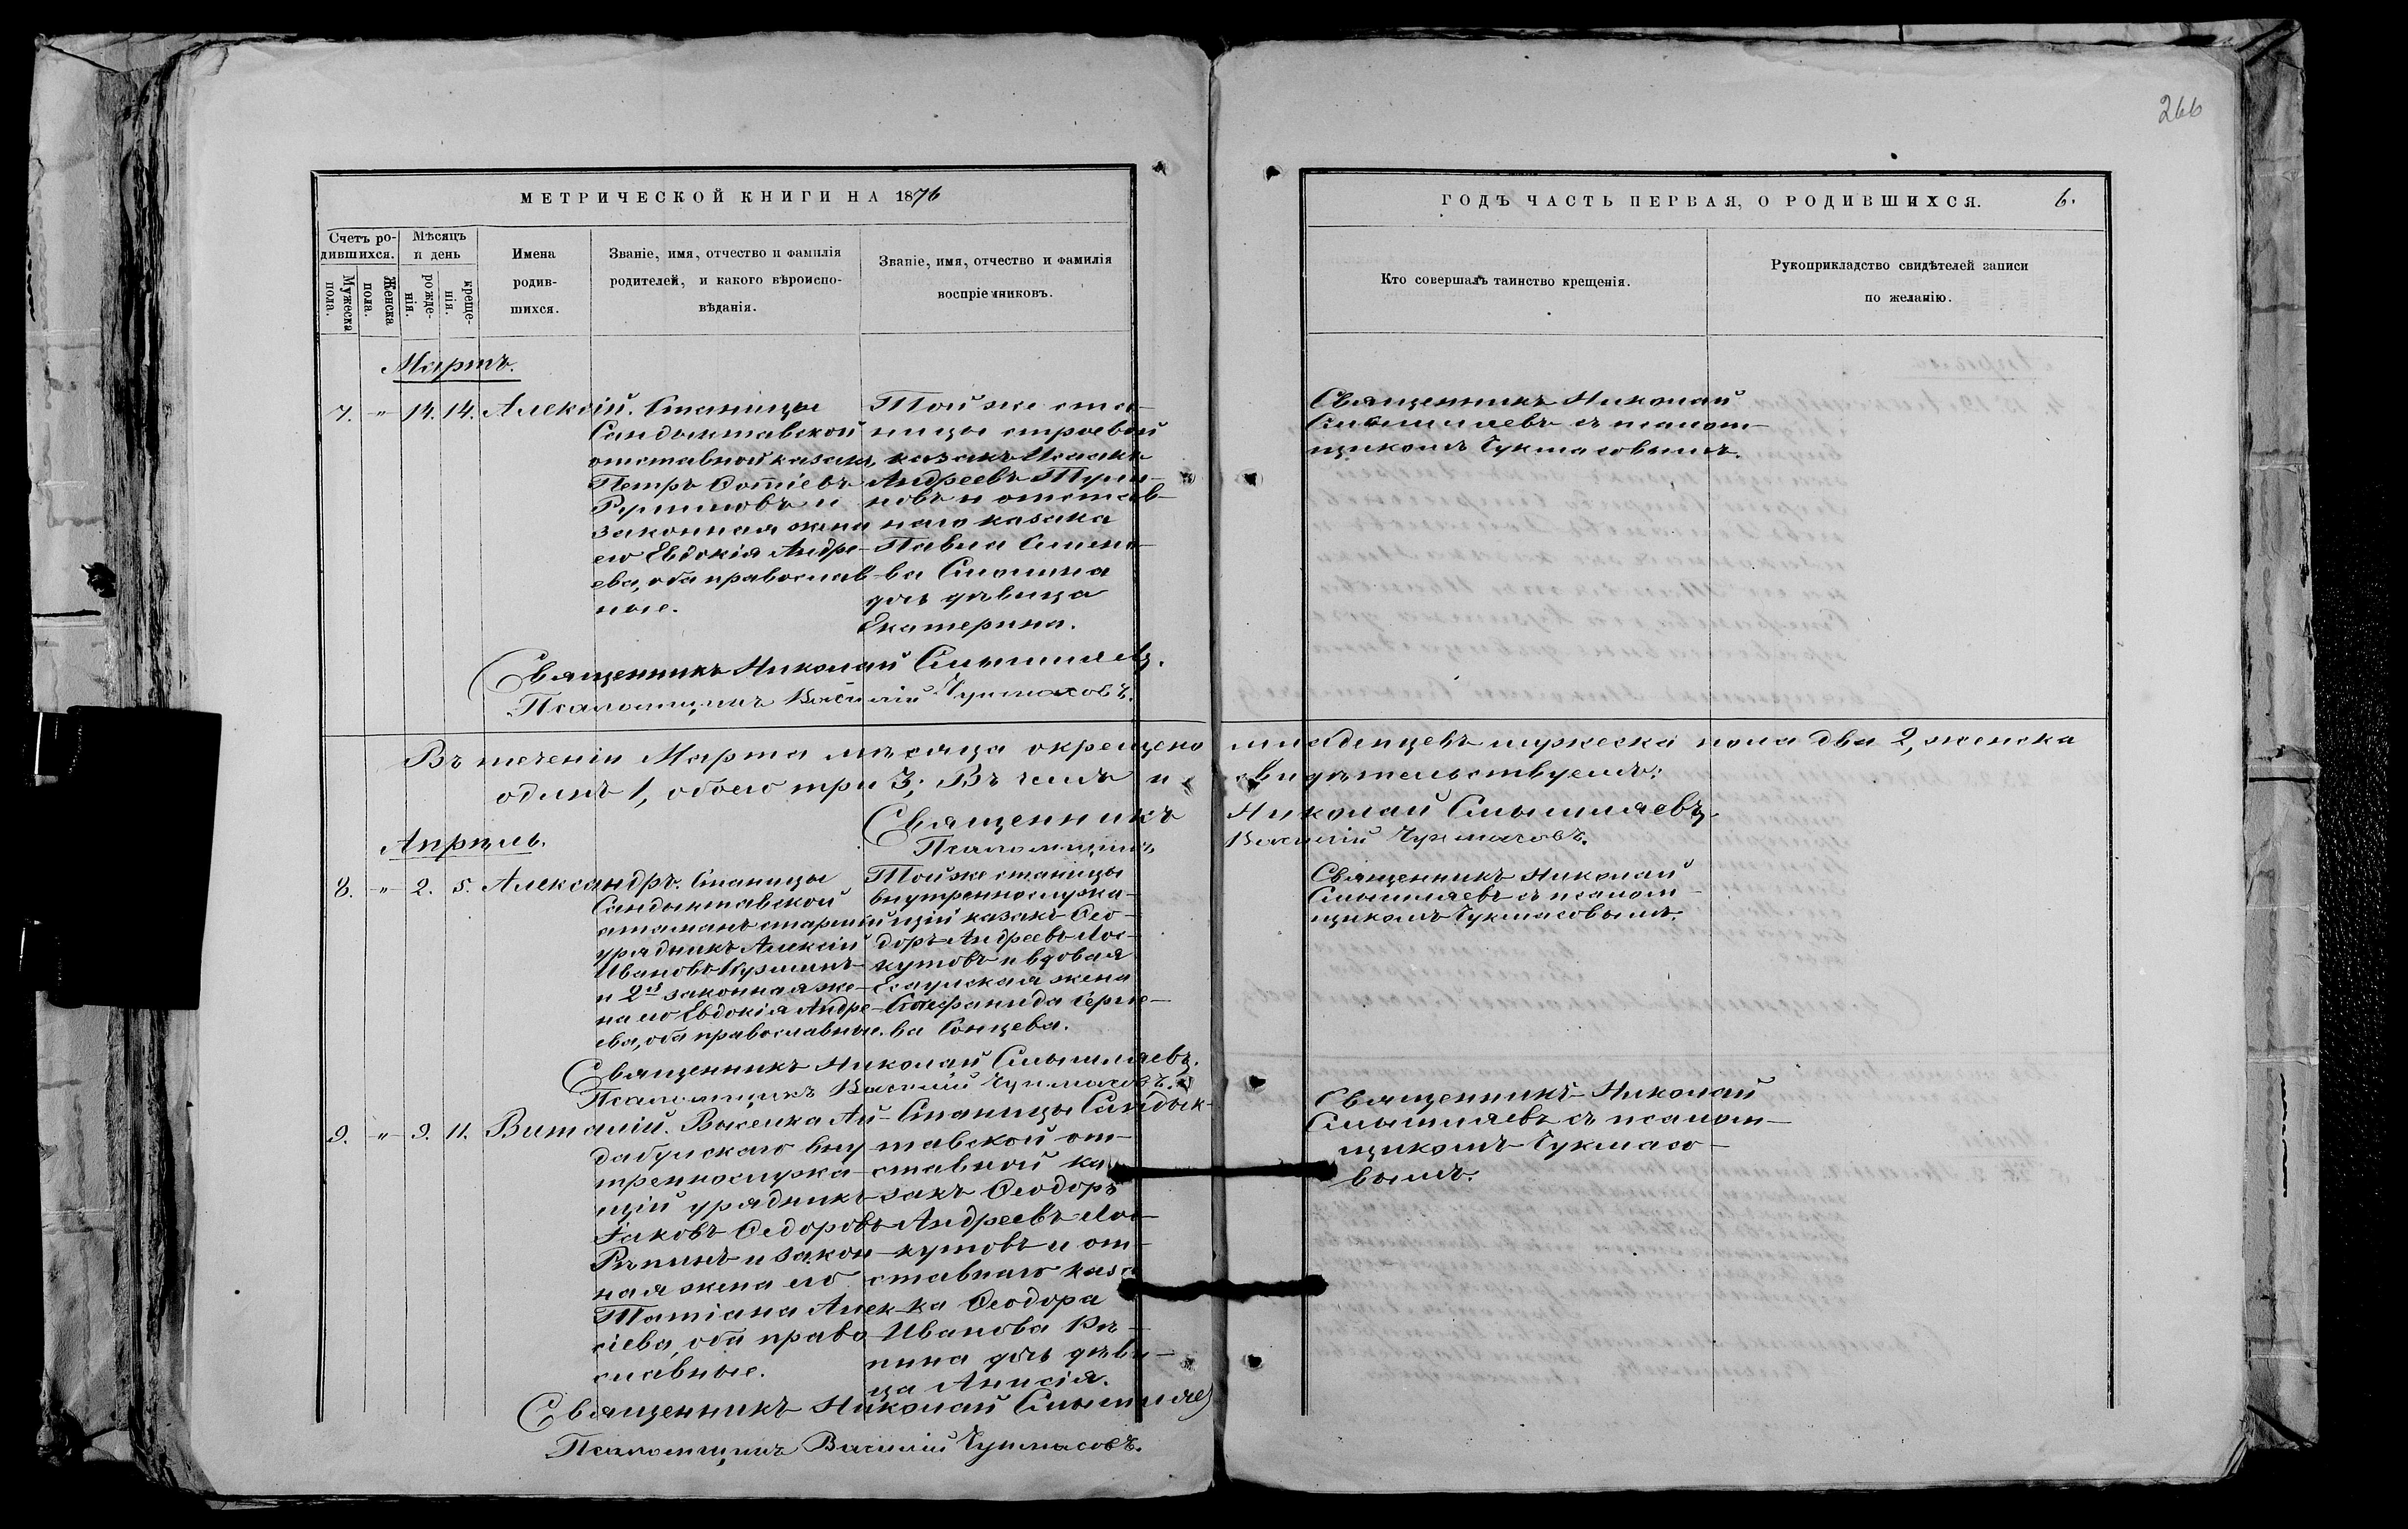 266
МЕТРИЧЕСКОЙ КНИГИ НА 1876
ГОДЪ ЧАСТЬ ПЕРВАЯ, О РОДИВШИХСЯ. 6.
Счетъ ро-
дившихся.
Мужеска
пола.
Женска
пола.
Мѣсяцъ
и день
рожде-
нія.
креще-
нія.
Имена
родив-
шихся.
Званіе, имя, отчество и фамилія
родителей, и какого вѣроиспо-
вѣданія.
Званіе, имя, отчество и фамилія
воспріемниковъ.
Кто совершалъ таинство крещенія.
Рукоприкладство свидѣтелей записи
по желанію.
Мартъ.
7. " 14. 14. Алексій.
Станицы
Сандыктавской
отставной казакъ
Петръ Фотіевъ
и
законная жена
его Евдокія Андре-
ева, оба православ-
ные.
Той же ста-
ницы строевой
казакъ Исаакъ
Андреевъ
и отстав-
наго казака
Павла Симено-
ва
дочь дѣвица
Екатерина.
Священникъ Николай
Смышляевъ съ псалом-
щикомъ Чукмасовымъ.
Священникъ Николай Смышляевъ.
Псаломщикъ Василій Чукмасовъ.
Въ теченіи Марта мѣсяца окрещено младенцевъ мужеска пола два 2, женска
одинъ 1, обоего три 3; Въ чемъ и свидѣтельствуемъ:
Священникъ Николай Смышляевъ
Псаломщикъ Василій Чукмасовъ.
Апрѣль.
8. " 2. 5. Александръ.
Станицы
Сандыктавской
атаманъ старшій
урядникъ Алексій
Ивановъ Курминъ
и 2й законная же-
на его Евдокія Андре-
ева, оба православные.
Той же станицы
внутреннослужа-
щій казакъ Фео-
доръ Андреевъ Лос-
кутовъ и вдовая
Есаульская жена
Стефанида Серге-
ва Сонцева.
Священникъ Николай
Смышляевъ съ псалом-
щикомъ Чукмасовымъ.
Священникъ Николай Смышляевъ.
Псаломщикъ Василій Чукмасовъ.
9. " 9. 11. Виталій.
Выселка Ай-
дабульскаго вну-
треннослужа-
щій урядникъ
Іаковъ Федоровъ
Рѣпинъ и закон-
ная жена его
Татіана Алек-
сіева, оба право-
славные.
Станицы Сандык-
тавской от-
ставной ка-
закъ Феодоръ
Андреевъ Лос-
кутовъ и от-
ставнаго каза-
ка Феодора
Иванова Рѣ-
пина дочь дѣви-
ца Анисія.
Священникъ Николай
Смышляевъ съ псалом-
щикомъ Чукмасо-
вымъ.
Священникъ Николай Смышляев
Псаломщикъ Василій Чукмасовъ.